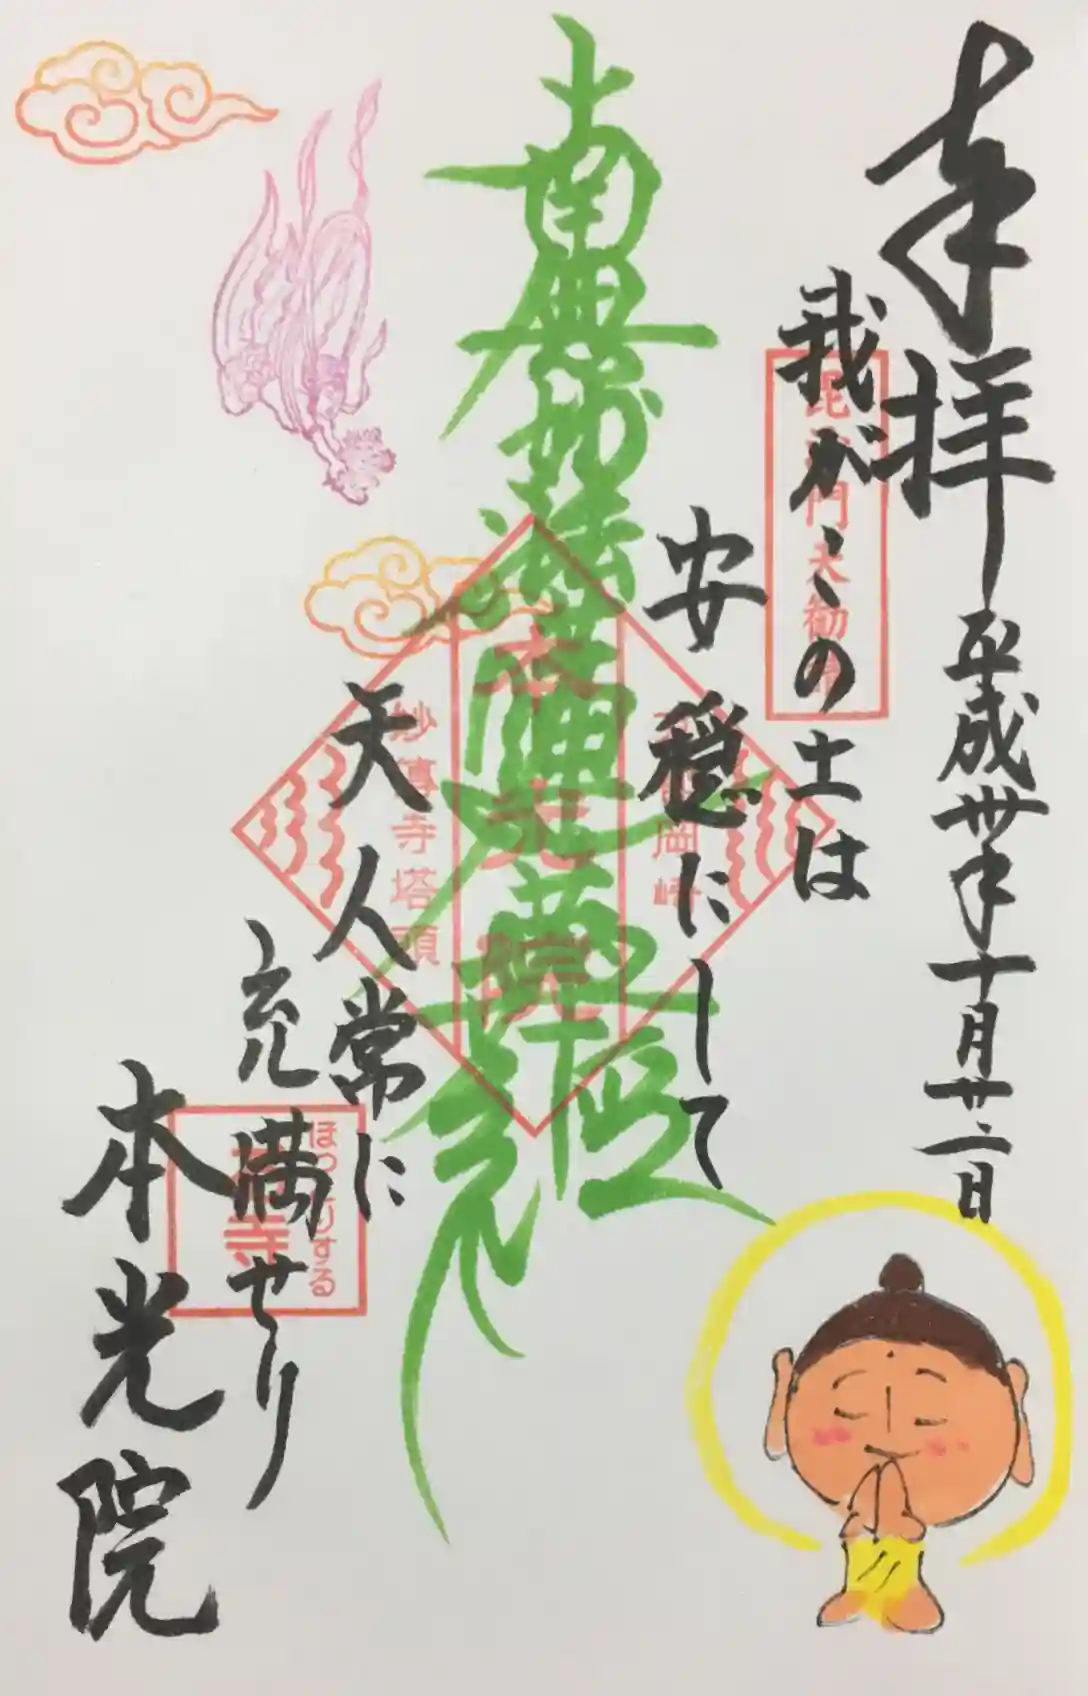 奉拝
平成卅年十月廿二日
我がこの土は
安穏にして
南無妙法蓮華経
天人常に
充満せり
本光院
本光院
妙傳寺塔頭
ほっこりする